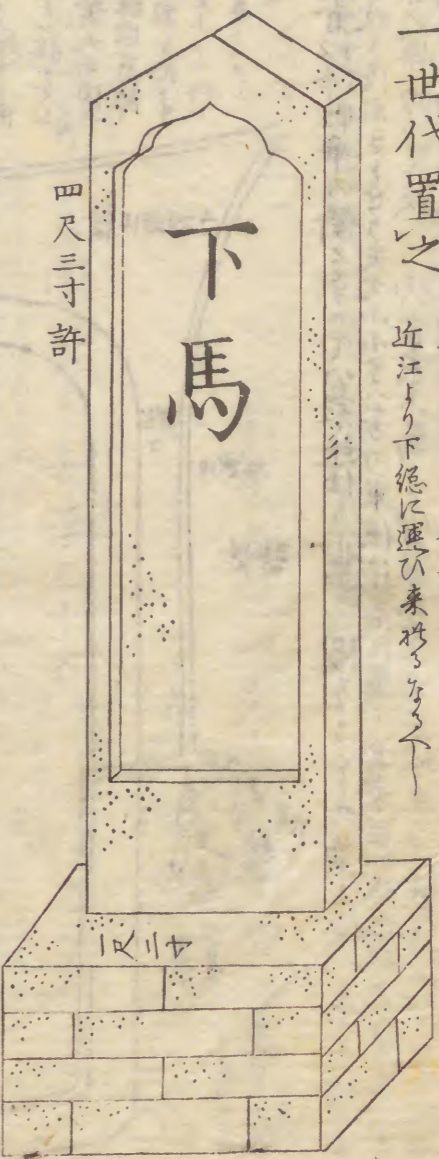 一世代置之
近江より下総に運ひ来れるなるへし
下馬
四尺三寸許
一尺二寸